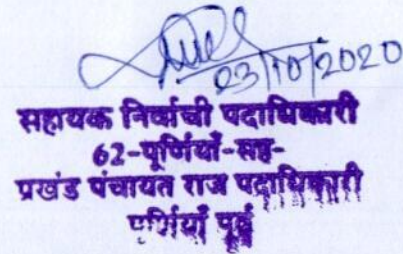 23/10/2020
सहायक निर्वाची पदाधिकारी
62-पूर्णियाँ-सह-
प्रखंड पंचायत राज पदाधिकारी
पूर्णियाँ पूर्व